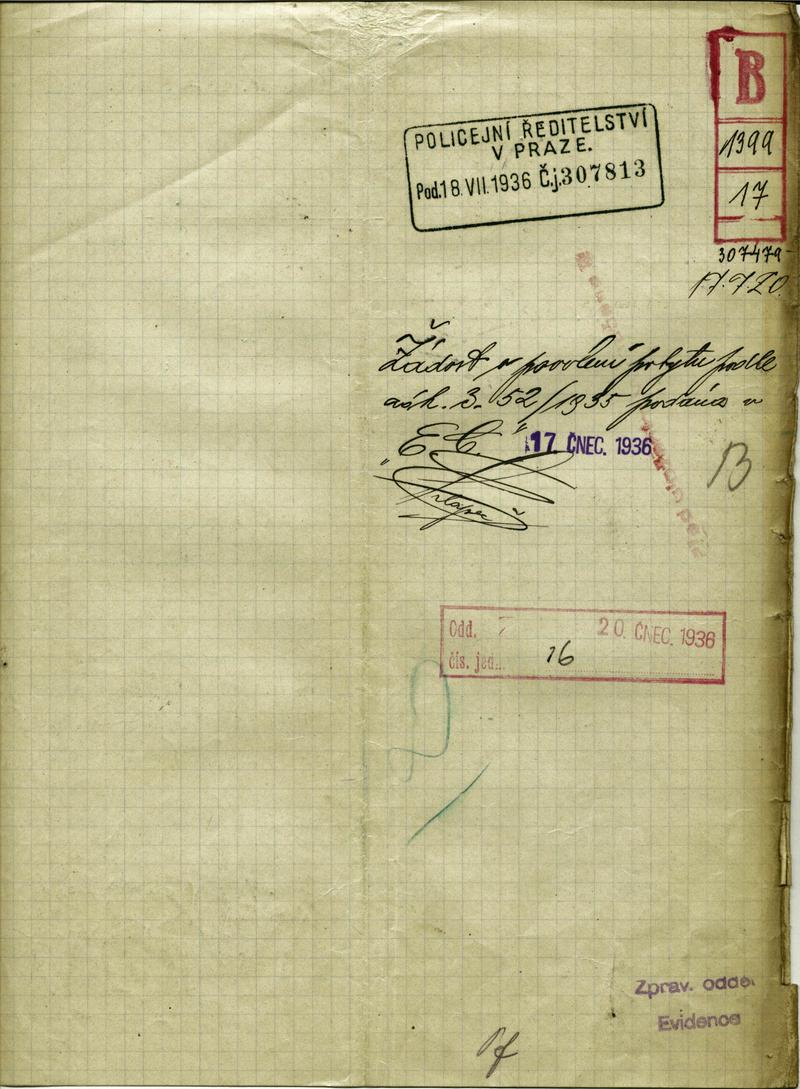 B
1399
17
POLICEJNÍ ŘEDITELSTVÍ
V PRAZE.
Pod.18.VII.1936 Č.j.307813
307479-
17.7.20
Žádost o povolení pobytu podle
zák. z. 52/1935 podána v
"E.C."
17 ČNEC. 1936
B
Odd. 7 20. ČNEC. 1936
čís. jed. 16
Zprav. oddě.
Evidence